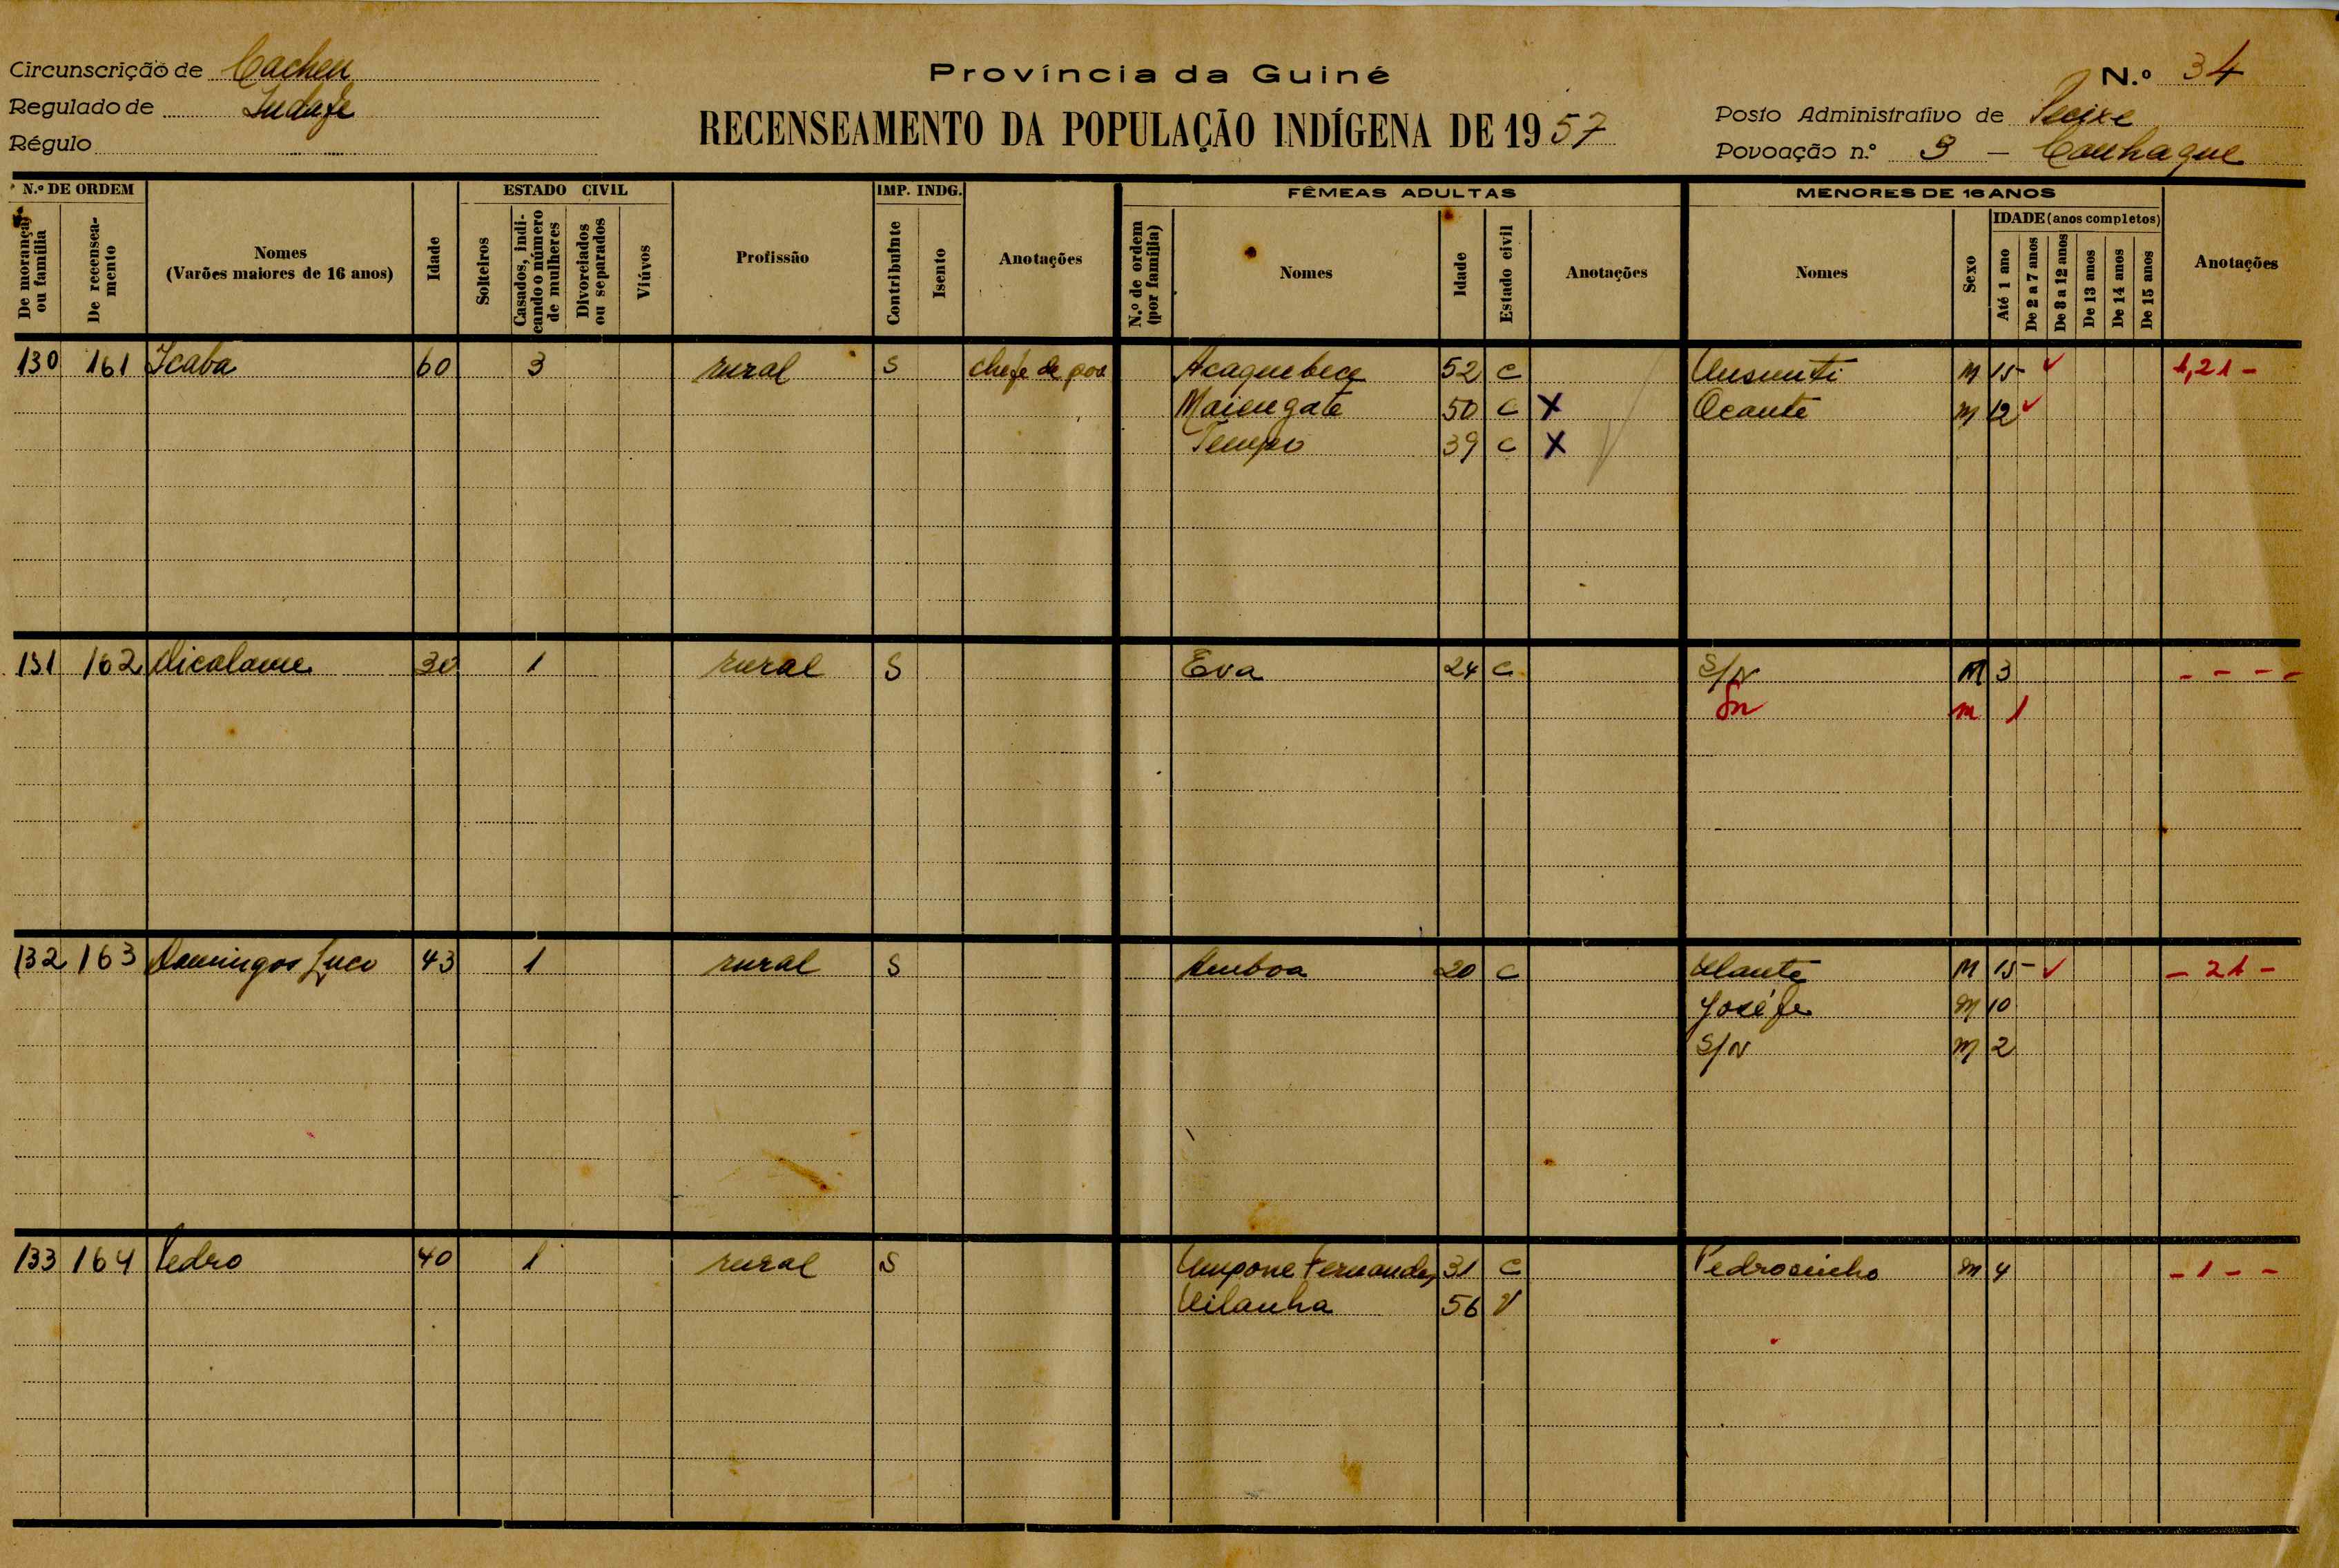 Circunscrição de Cacheu
Regulado de
Régulo
Província da Guiné
RECENSEAMENTO DA POPULAÇÃO INDÍGENA DE 1957
N.º 34
Posto Administrativo de
Povoação n.º 3 – Conhaque
N.º DE ORDEM
De morança ou família
De recenseamento
Nomes
(Varões maiores de 16 anos)
Idade
ESTADO CIVIL
Solteiros
Casados, indi-
cando o número
de mulheres
Divorciados
ou separados
Viúvos
Profissão
IMP. INDG.
Contribuinte
Isento
Anotações
FÊMEAS ADULTAS
N.º de ordem
(por família)
Nomes
Idade
Estado civil
Anotações
MENORES DE 16 ANOS
Nomes
Sexo
IDADE (anos completos)
Até 1 ano
De 2 a 7 anos
De 8 a 12 anos
De 13 anos
De 14 anos
De 15 anos
Anotações
130 161 Icaba 60 3 rural S chefe de pov Acaquebece 52 C M 15 1,21 -
Maiengate 50 C X Ocante M 12
Tempo 39 C X
131 162 30 1 rural S Eva 24 C S/N M 3 - - - -
Sn m 1
132 163 Domingos 43 1 rural S Amboa 20 C Ulante M 15 - 21 -
Joséfe M 10
S/N M 2
133 164 Pedro 40 1 rural S Umpone Fernandes 31 C Pedrosinho M 4 - 1 - -
Uilanha 56 V